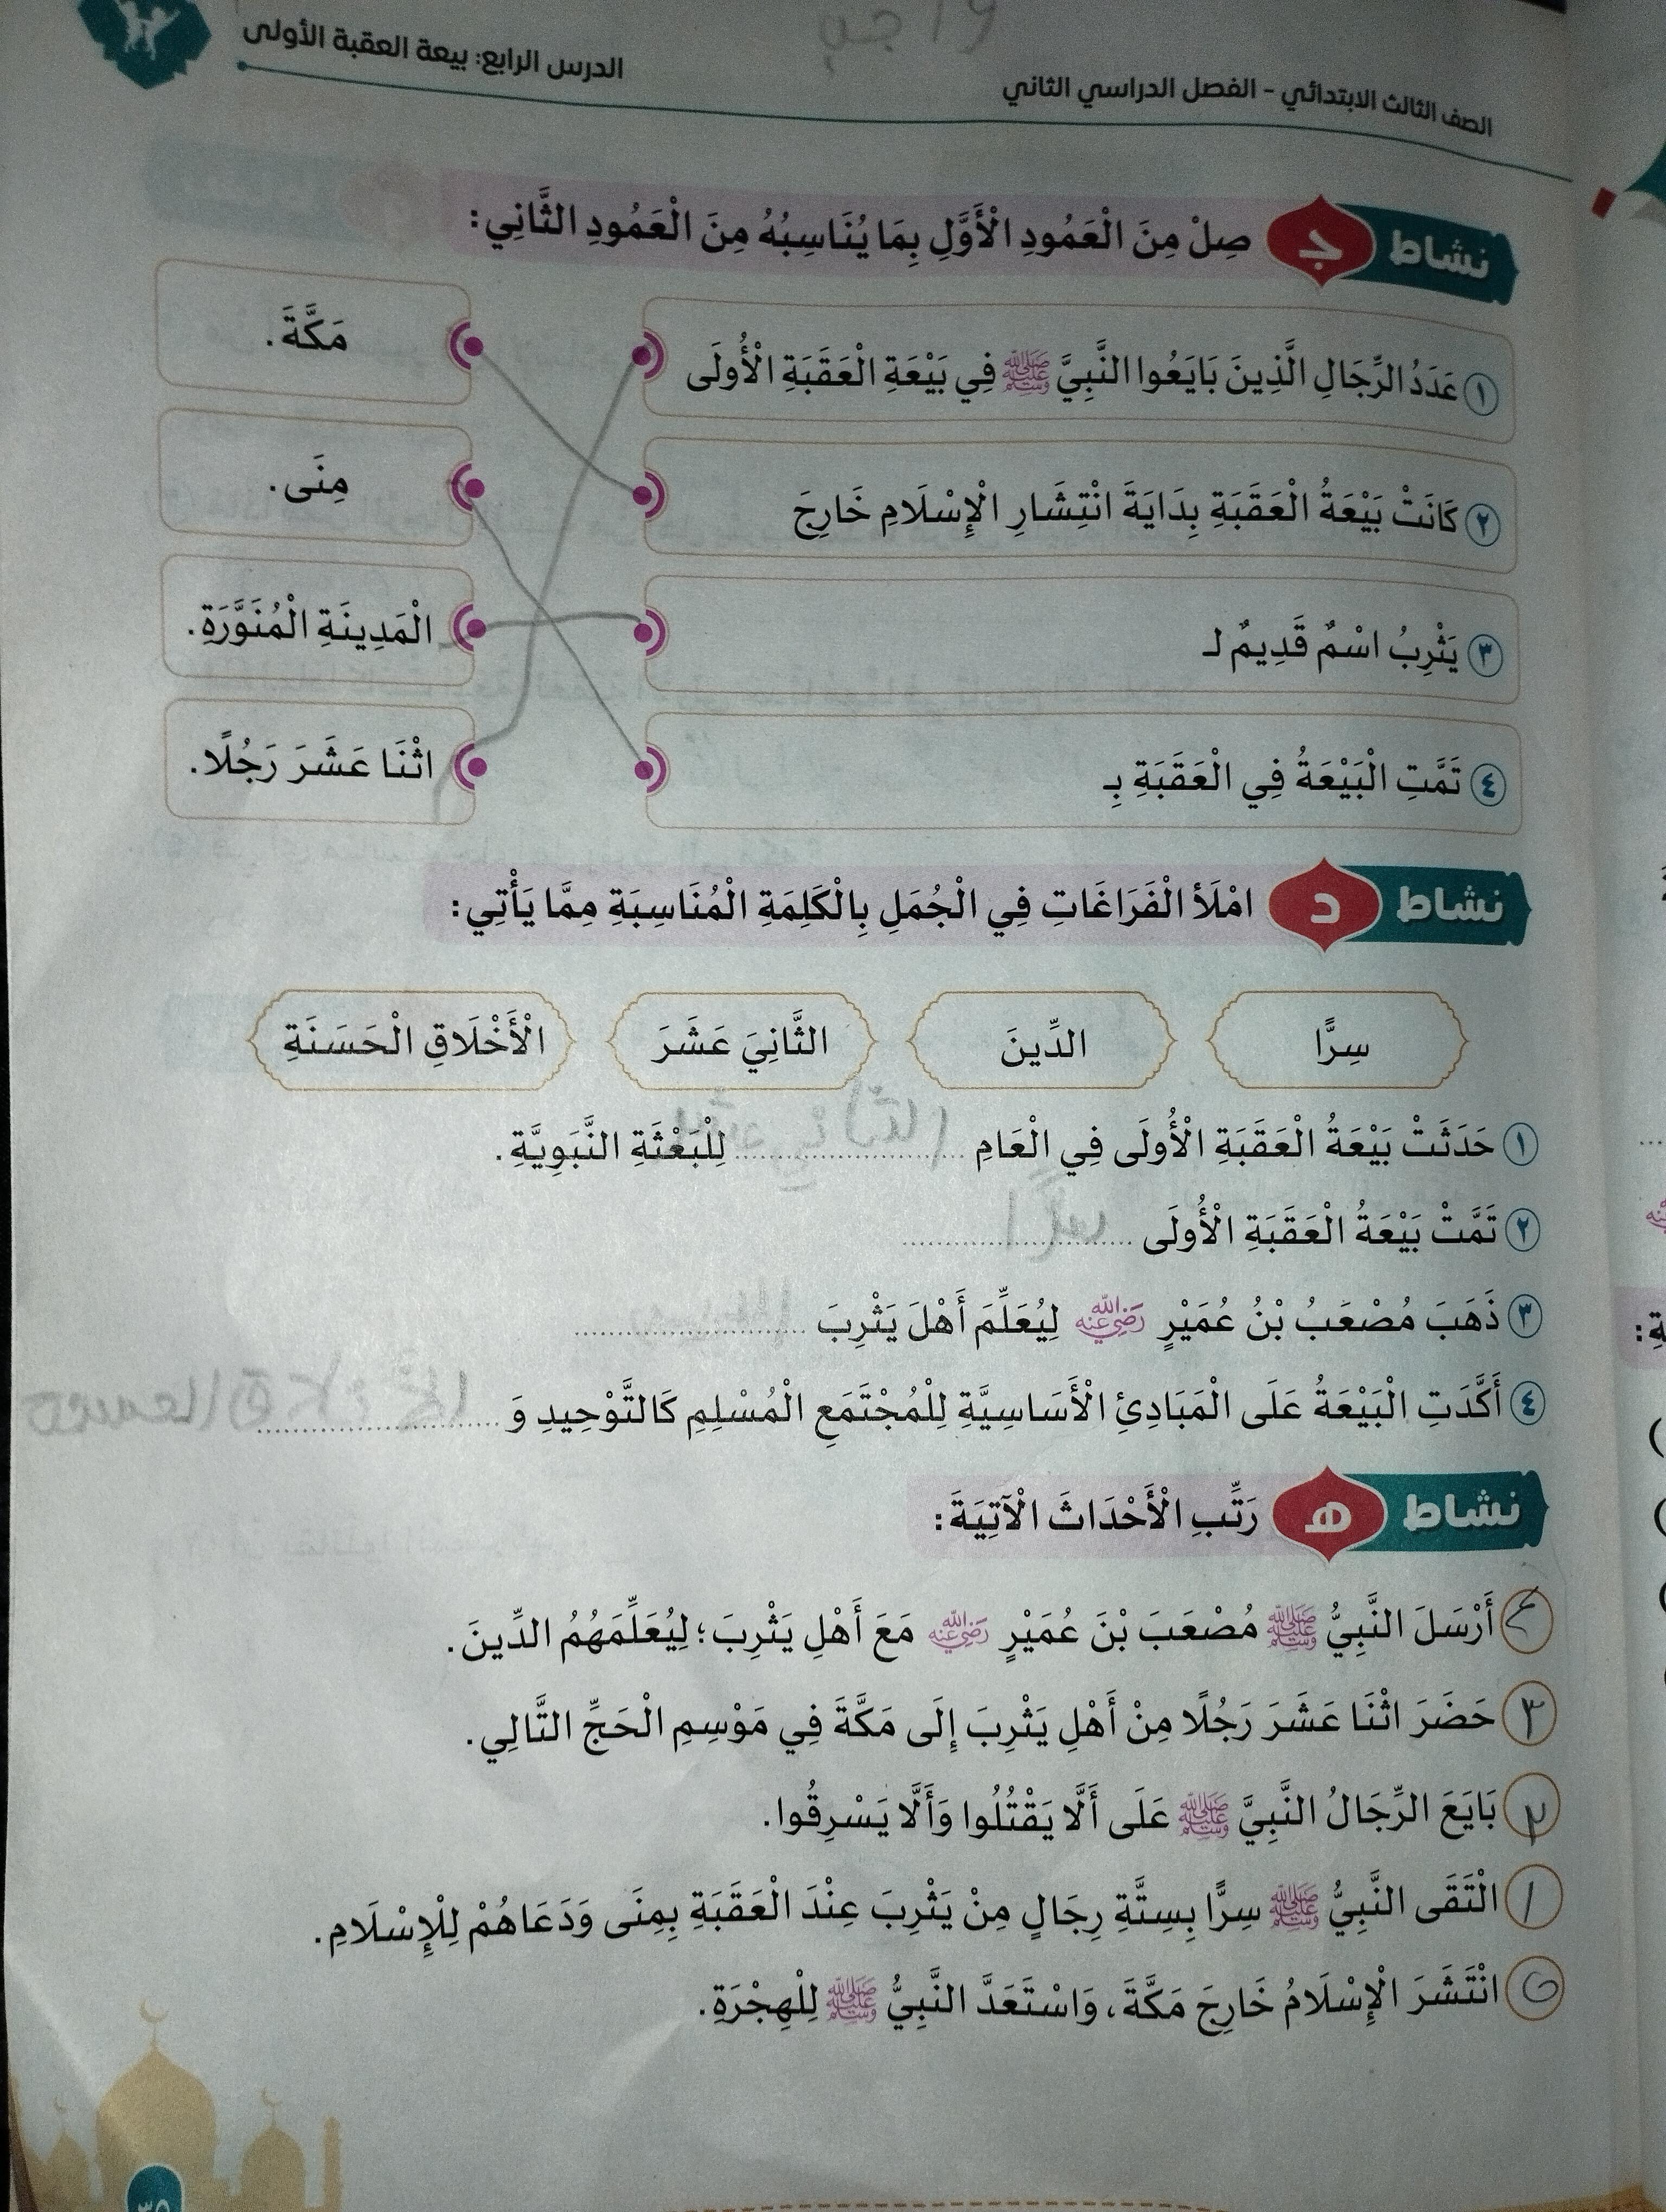 واجب
الصف الثالث الابتدائي - الفصل الدراسي الثاني
الدرس الرابع: بيعة العقبة الأولى
نشاط ج صِلْ مِنَ الْعَمُودِ الْأَوَّلِ بِمَا يُنَاسِبُهُ مِنَ الْعَمُودِ الثَّانِي:
١ عَدَدُ الرِّجَالِ الَّذِينَ بَايَعُوا النَّبِيَّ ﷺ فِي بَيْعَةِ الْعَقَبَةِ الْأُولَى
مَكَّةَ.
٢ كَانَتْ بَيْعَةُ الْعَقَبَةِ بِدَايَةَ انْتِشَارِ الْإِسْلَامِ خَارِجَ
مِنَى.
٣ يَثْرِبُ اسْمٌ قَدِيمٌ لـ
الْمَدِينَةِ الْمُنَوَّرَةِ.
٤ تَمَّتِ الْبَيْعَةُ فِي الْعَقَبَةِ بِـ
اثْنَا عَشَرَ رَجُلًا.
نشاط د امْلَأِ الْفَرَاغَاتِ فِي الْجُمَلِ بِالْكَلِمَةِ الْمُنَاسِبَةِ مِمَّا يَأْتِي:
سِرًّا الدِّينَ الثَّانِيَ عَشَرَ الْأَخْلَاقِ الْحَسَنَةِ
١ حَدَثَتْ بَيْعَةُ الْعَقَبَةِ الْأُولَى فِي الْعَامِ الثاني عشر لِلْبَعْثَةِ النَّبَوِيَّةِ.
٢ تَمَّتْ بَيْعَةُ الْعَقَبَةِ الْأُولَى سرًا
٣ ذَهَبَ مُصْعَبُ بْنُ عُمَيْرٍ رَضِيَ اللهُ عَنْهُ لِيُعَلِّمَ أَهْلَ يَثْرِبَ الدين
٤ أَكَّدَتِ الْبَيْعَةُ عَلَى الْمَبَادِئِ الْأَسَاسِيَّةِ لِلْمُجْتَمَعِ الْمُسْلِمِ كَالتَّوْحِيدِ وَ
نشاط هـ رَتِّبِ الْأَحْدَاثَ الْآتِيَةَ:
٤ أَرْسَلَ النَّبِيُّ ﷺ مُصْعَبَ بْنَ عُمَيْرٍ رَضِيَ اللهُ عَنْهُ مَعَ أَهْلِ يَثْرِبَ؛ لِيُعَلِّمَهُمُ الدِّينَ.
٣ حَضَرَ اثْنَا عَشَرَ رَجُلًا مِنْ أَهْلِ يَثْرِبَ إِلَى مَكَّةَ فِي مَوْسِمِ الْحَجِّ التَّالِي.
٢ بَايَعَ الرِّجَالُ النَّبِيَّ ﷺ عَلَى أَلَّا يَقْتُلُوا وَأَلَّا يَسْرِقُوا.
١ الْتَقَى النَّبِيُّ ﷺ سِرًّا بِسِتَّةِ رِجَالٍ مِنْ يَثْرِبَ عِنْدَ الْعَقَبَةِ بِمِنَى وَدَعَاهُمْ لِلْإِسْلَامِ.
٥ انْتَشَرَ الْإِسْلَامُ خَارِجَ مَكَّةَ، وَاسْتَعَدَّ النَّبِيُّ ﷺ لِلْهِجْرَةِ.
٣٥